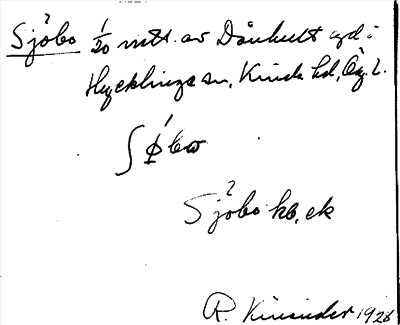 Sjöbo 1/20 mtl. av Dånhult i
Hycklinge sn, Kinda hd, Ög. l.
Sjöbo kb, ek
R. Kinander 1928